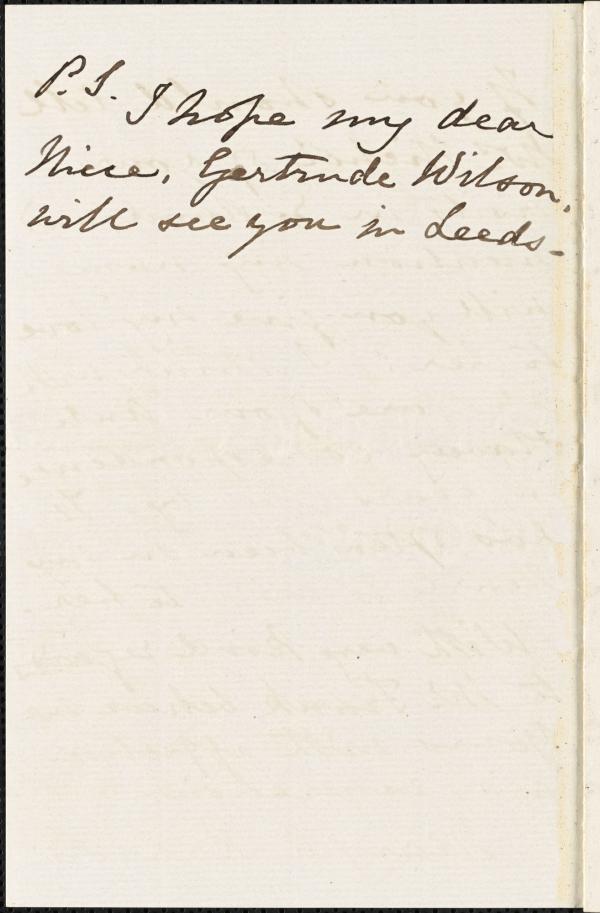 P.S.
I hope my dear
Niece, Gertrude Wilson,
will see you in Leeds-